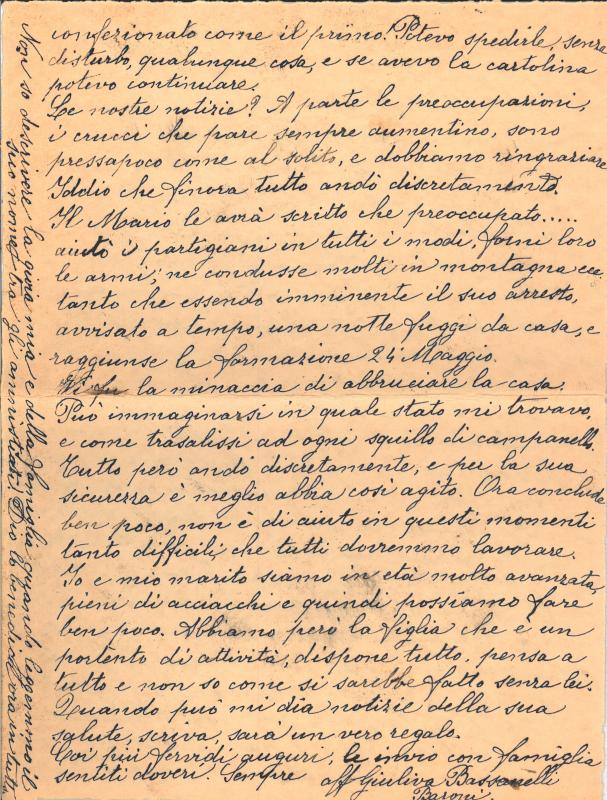 confezionato come il primo! Potevo spedirle, senza
disturbo, qualunque cosa, e se avevo la cartolina
potevo continuare.
Le nostre notizie? A parte le preoccupazioni,
i crucci che pare sempre aumentino, sono
pressapoco come al solito, e dobbiamo ringraziare
Iddio che finora tutto andò discretamente.
Il Mario le avrà scritto che preoccupato.....
aiutò i partigiani in tutti i modi, fornì loro
le armi; ne condusse molti in montagna ecc
tanto che essendo imminente il suo arresto,
avvisato a tempo, una notte fuggì da casa, e
raggiunse la formazione 24 Maggio.
Vi fu la minaccia di abbruciare la casa.
Può immaginarsi in quale stato mi trovavo,
e come trasalissi ad ogni squillo di campanello.
Tutto però andò discretamente, e per la sua
sicurezza è meglio abbia così agito. Ora conclude
ben poco, non è di aiuto in questi momenti
tanto difficili, che tutti dovremmo lavorare.
Io e mio marito siamo in età molto avanzata,
pieni di acciacchi e quindi possiamo fare
ben poco. Abbiamo però la figlia che è un
portento di attività, dispone tutto, pensa a
tutto e non so come si sarebbe fatto senza lei.
Quando può mi dia notizie della sua
salute, scriva, sarà un vero regalo.
Coi più fervidi auguri, le invio con famiglia
sentiti doveri. Sempre aff Giuliva Bassanelli
Baroni.
Non so descrivere la gioia mia e della famiglia quando leggemmo il
suo nome tra gli amnistiati. Dio la benedica ora in tutto